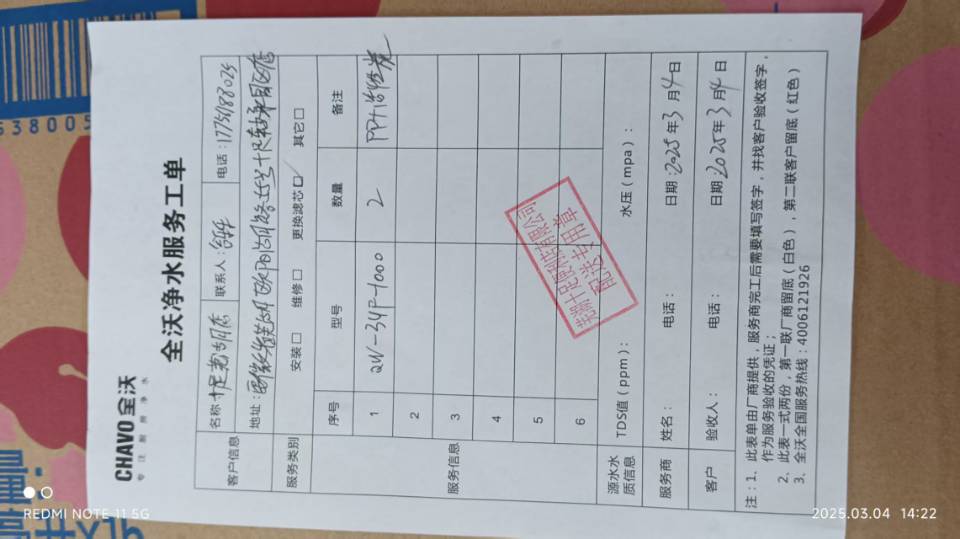 CHAVO 全沃
专注耐用净水
全沃净水服务工单
客户信息
名称：十足芜湖店
联系人：
电话：
地址：
服务类别
安装□ 维修□ 更换滤芯☑ 其它□
服务信息
序号 型号 数量 备注
1 QW-34P-1000 2 PP+活性炭
2
3
4
5
6
芜湖十足便利店有限公司
配送专用章
源水水质信息
TDS值（ppm）：
水压（mpa）：
服务商
姓名：
电话：
日期：2025年3月4日
客户
验收人：
电话：
日期：2025年3月4日
注：1、此表单由厂商提供，服务商完工后需要填写签字，并找客户验收签字，
作为服务验收的凭证；
2、此表一式两份，第一联厂商留底（白色），第二联客户留底（红色）
3、全沃全国服务热线：4006121926
REDMI NOTE 11 5G
2025.03.04 14:22